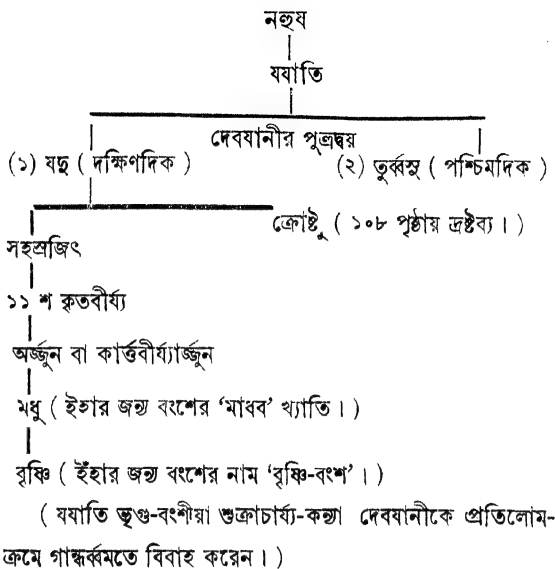 নহুষ
যযাতি
দেবযানীর পুত্রদ্বয়
(১) যদু ( দক্ষিণদিক )
(২) তুর্ব্বসু ( পশ্চিমদিক )
ক্রোষ্টু ( ১০৮ পৃষ্ঠায় দ্রষ্টব্য । )
সহস্রজিৎ
১১ শ কৃতবীর্য্য
অর্জ্জুন বা কার্ত্তবীর্য্যার্জ্জুন
মধু ( ইহার জন্য বংশের ‘মাধব’ খ্যাতি । )
বৃষ্ণি ( ইঁহার জন্য বংশের নাম ‘বৃষ্ণি-বংশ’ । )
( যযাতি ভৃগু-বংশীয়া শুক্রাচার্য্য-কন্যা দেবযানীকে প্রতিলোম-
ক্রমে গান্ধর্ব্বমতে বিবাহ করেন । )